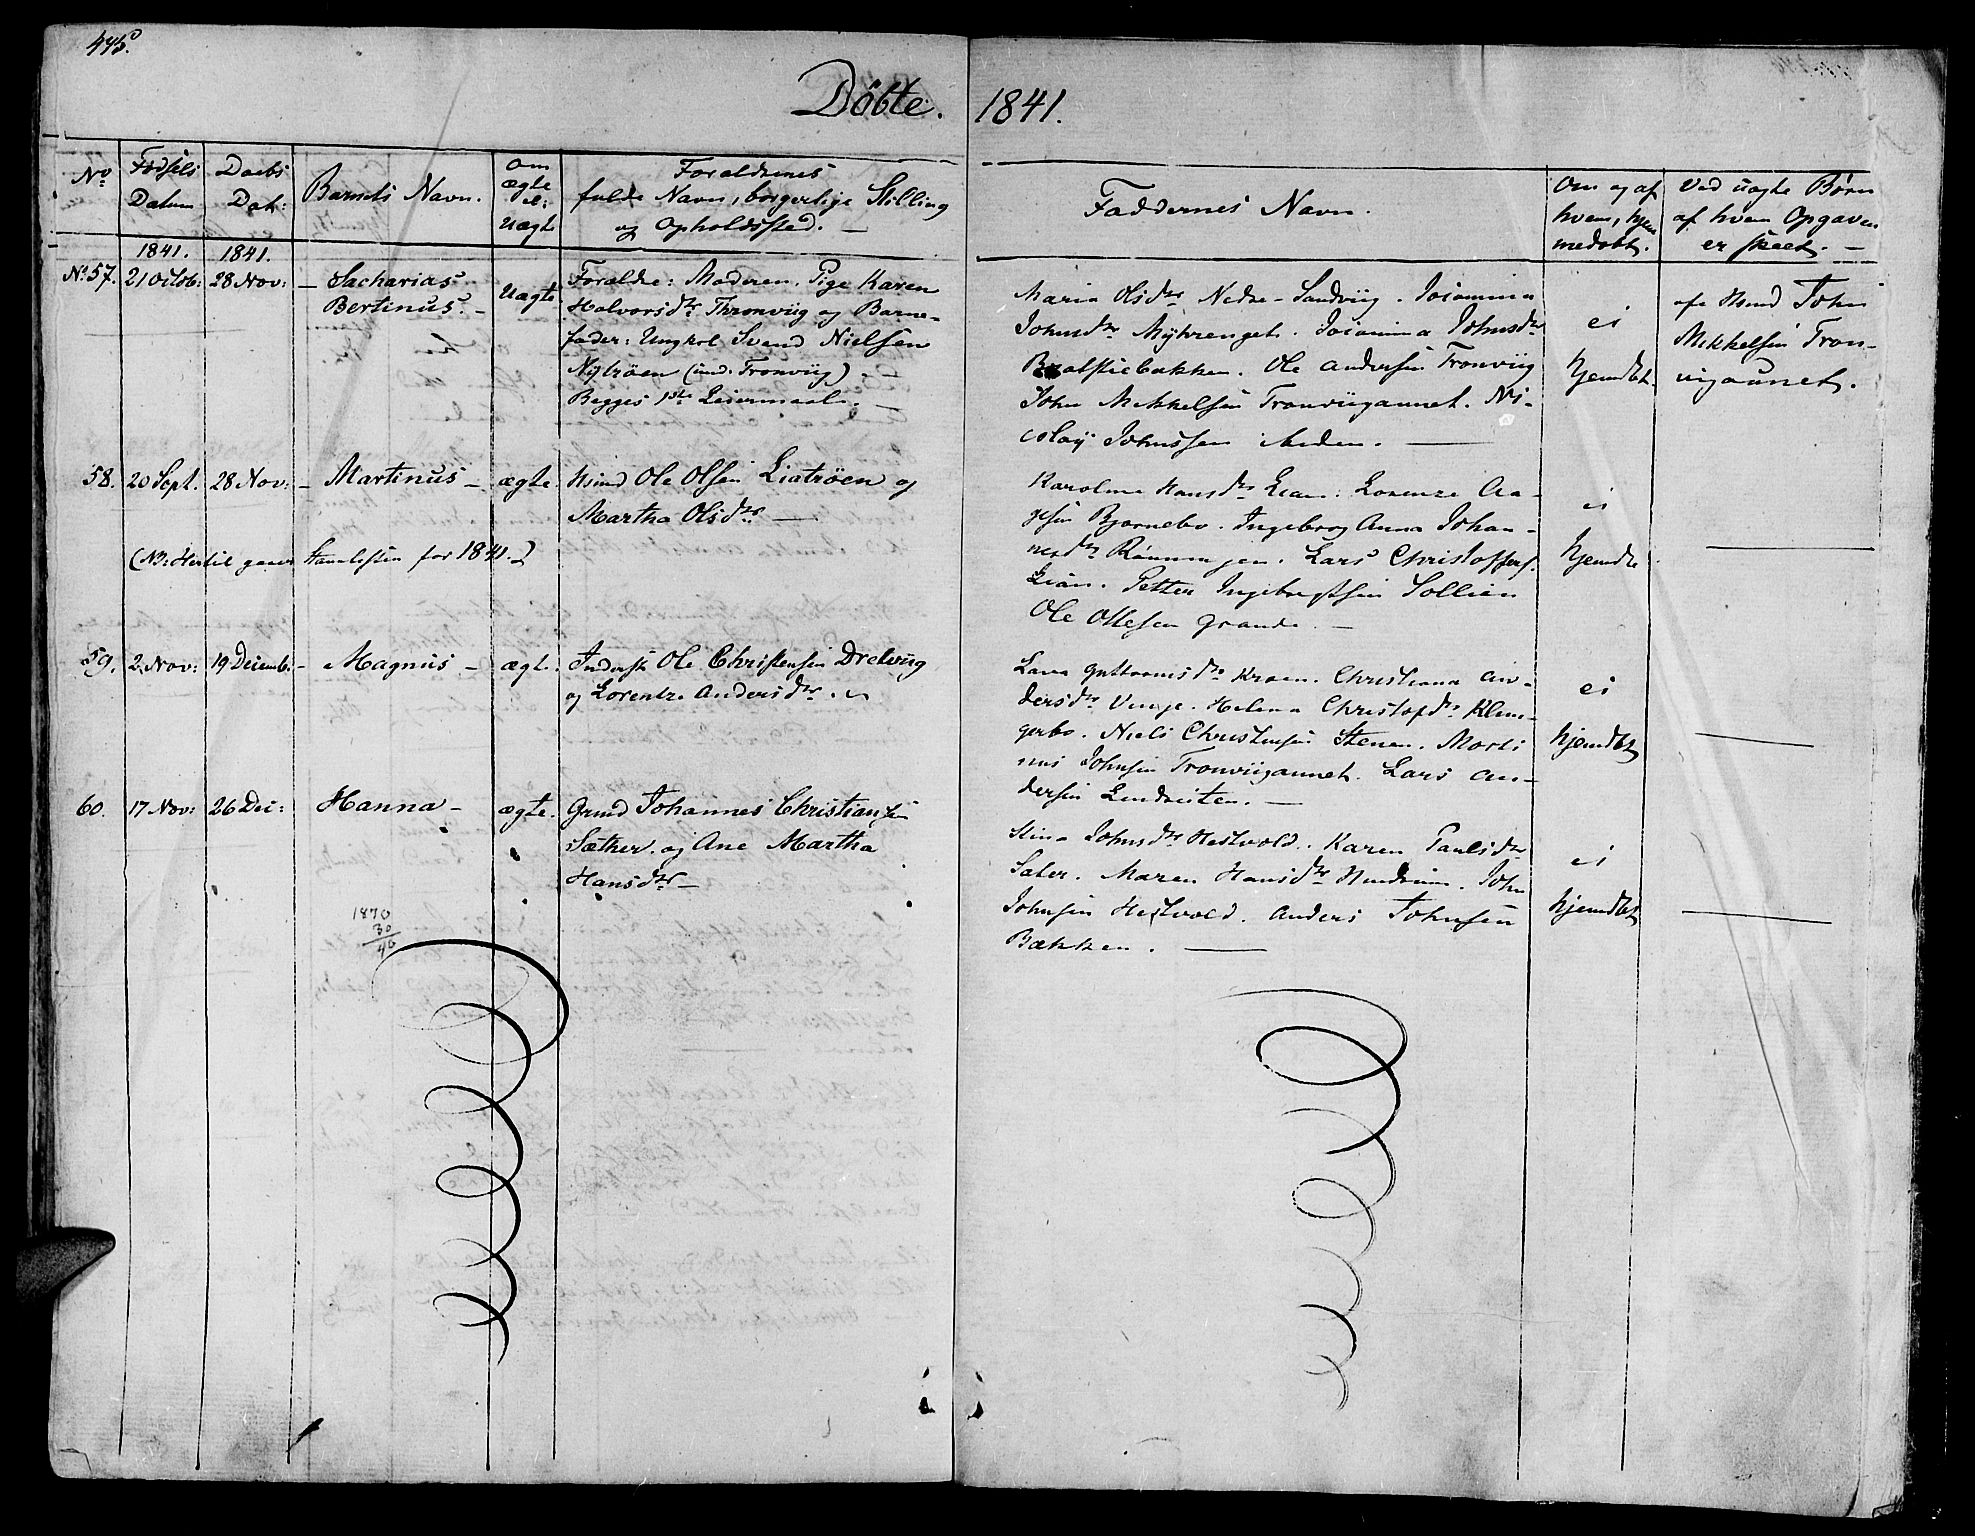 445.
Döbte. 1841.
No
Fødsels Datum
Daabs Dat:
Barnets Navn.
Om ægte el: Uægte
Forældrenes
fulde Navn, borgerlige Stilling
og Opholdssted. —
Faddernes Navn.
Om og af
hvem, hjem
medøbt.
Ved uægte Børn
af hvem Opgaven
er skeet. —
1841. 1841.
No 57. 21 Octbr: 28 Nov: — Sacharias
Bertinus. —
Uægte
Forældre: Moderen, Pige Karen
Halvorsdtr Thronviig og Barne-
fader: Ungkarl Svend Nielsen
Nytrøen (und. Tronviig). —
Begges 1ste Leiermaal. —
Maria Olsdtr Nedre-Sandviig. Joiamina
Johnsdtr Myhrenget. Joiamina Johnsdtr
bakken. Ole Andersen Tronviig
John Mikkelsen Tronviigaunet. Ni-
colay Johnssen
ei
hjemdbt.
af Huusmd John
Mikkelsen Tron-
viigaunet.
58. 20 Sept. 28 Nov: — Martinus — ægte. Huusmd Ole Olsen Liatröen og
Martha Olsdtr. —
(NB: Hertil gaaer Tavelisten for 1841.)
Karolina Hansdtr Lian. Lorenze Aa-
gesen Bjørnebo. Ingebrog Anna Johan-
nesdtr Rönningen. Lars Christoffers.
Lian. Petter Ingebrigtsen Sollien
Ole Ollesen Grande. —
ei
hjemdbt
59. 2 Nov: 19 Decemb: — Magnus — ægte. Inderst Ole Christensen Dretviig
og Lorentze Andersdtr.
Lava Guttormsdtr Kraen. Christiana An-
dersdtr Vinge. Helena Christofdtr Klin-
gerbo. Niels Christensen Stenen. Morti
nus Johnsen Tronviigaunet. Lars An-
dersen
ei
hjemdbt
60. 17 Nov: 26 Dec: Hanna — ægte. Grmd Johannes Christiansen
Sæther og Ane Martha
Hansdtr —
Stina Johnsdtr Hestvold. Karen Paulsdtr
Sæter. Maren Hansdtr. John
Johnsen Hestvold. Anders Johnsen
Bækken. —
ei
hjemdbt
1870
30
40